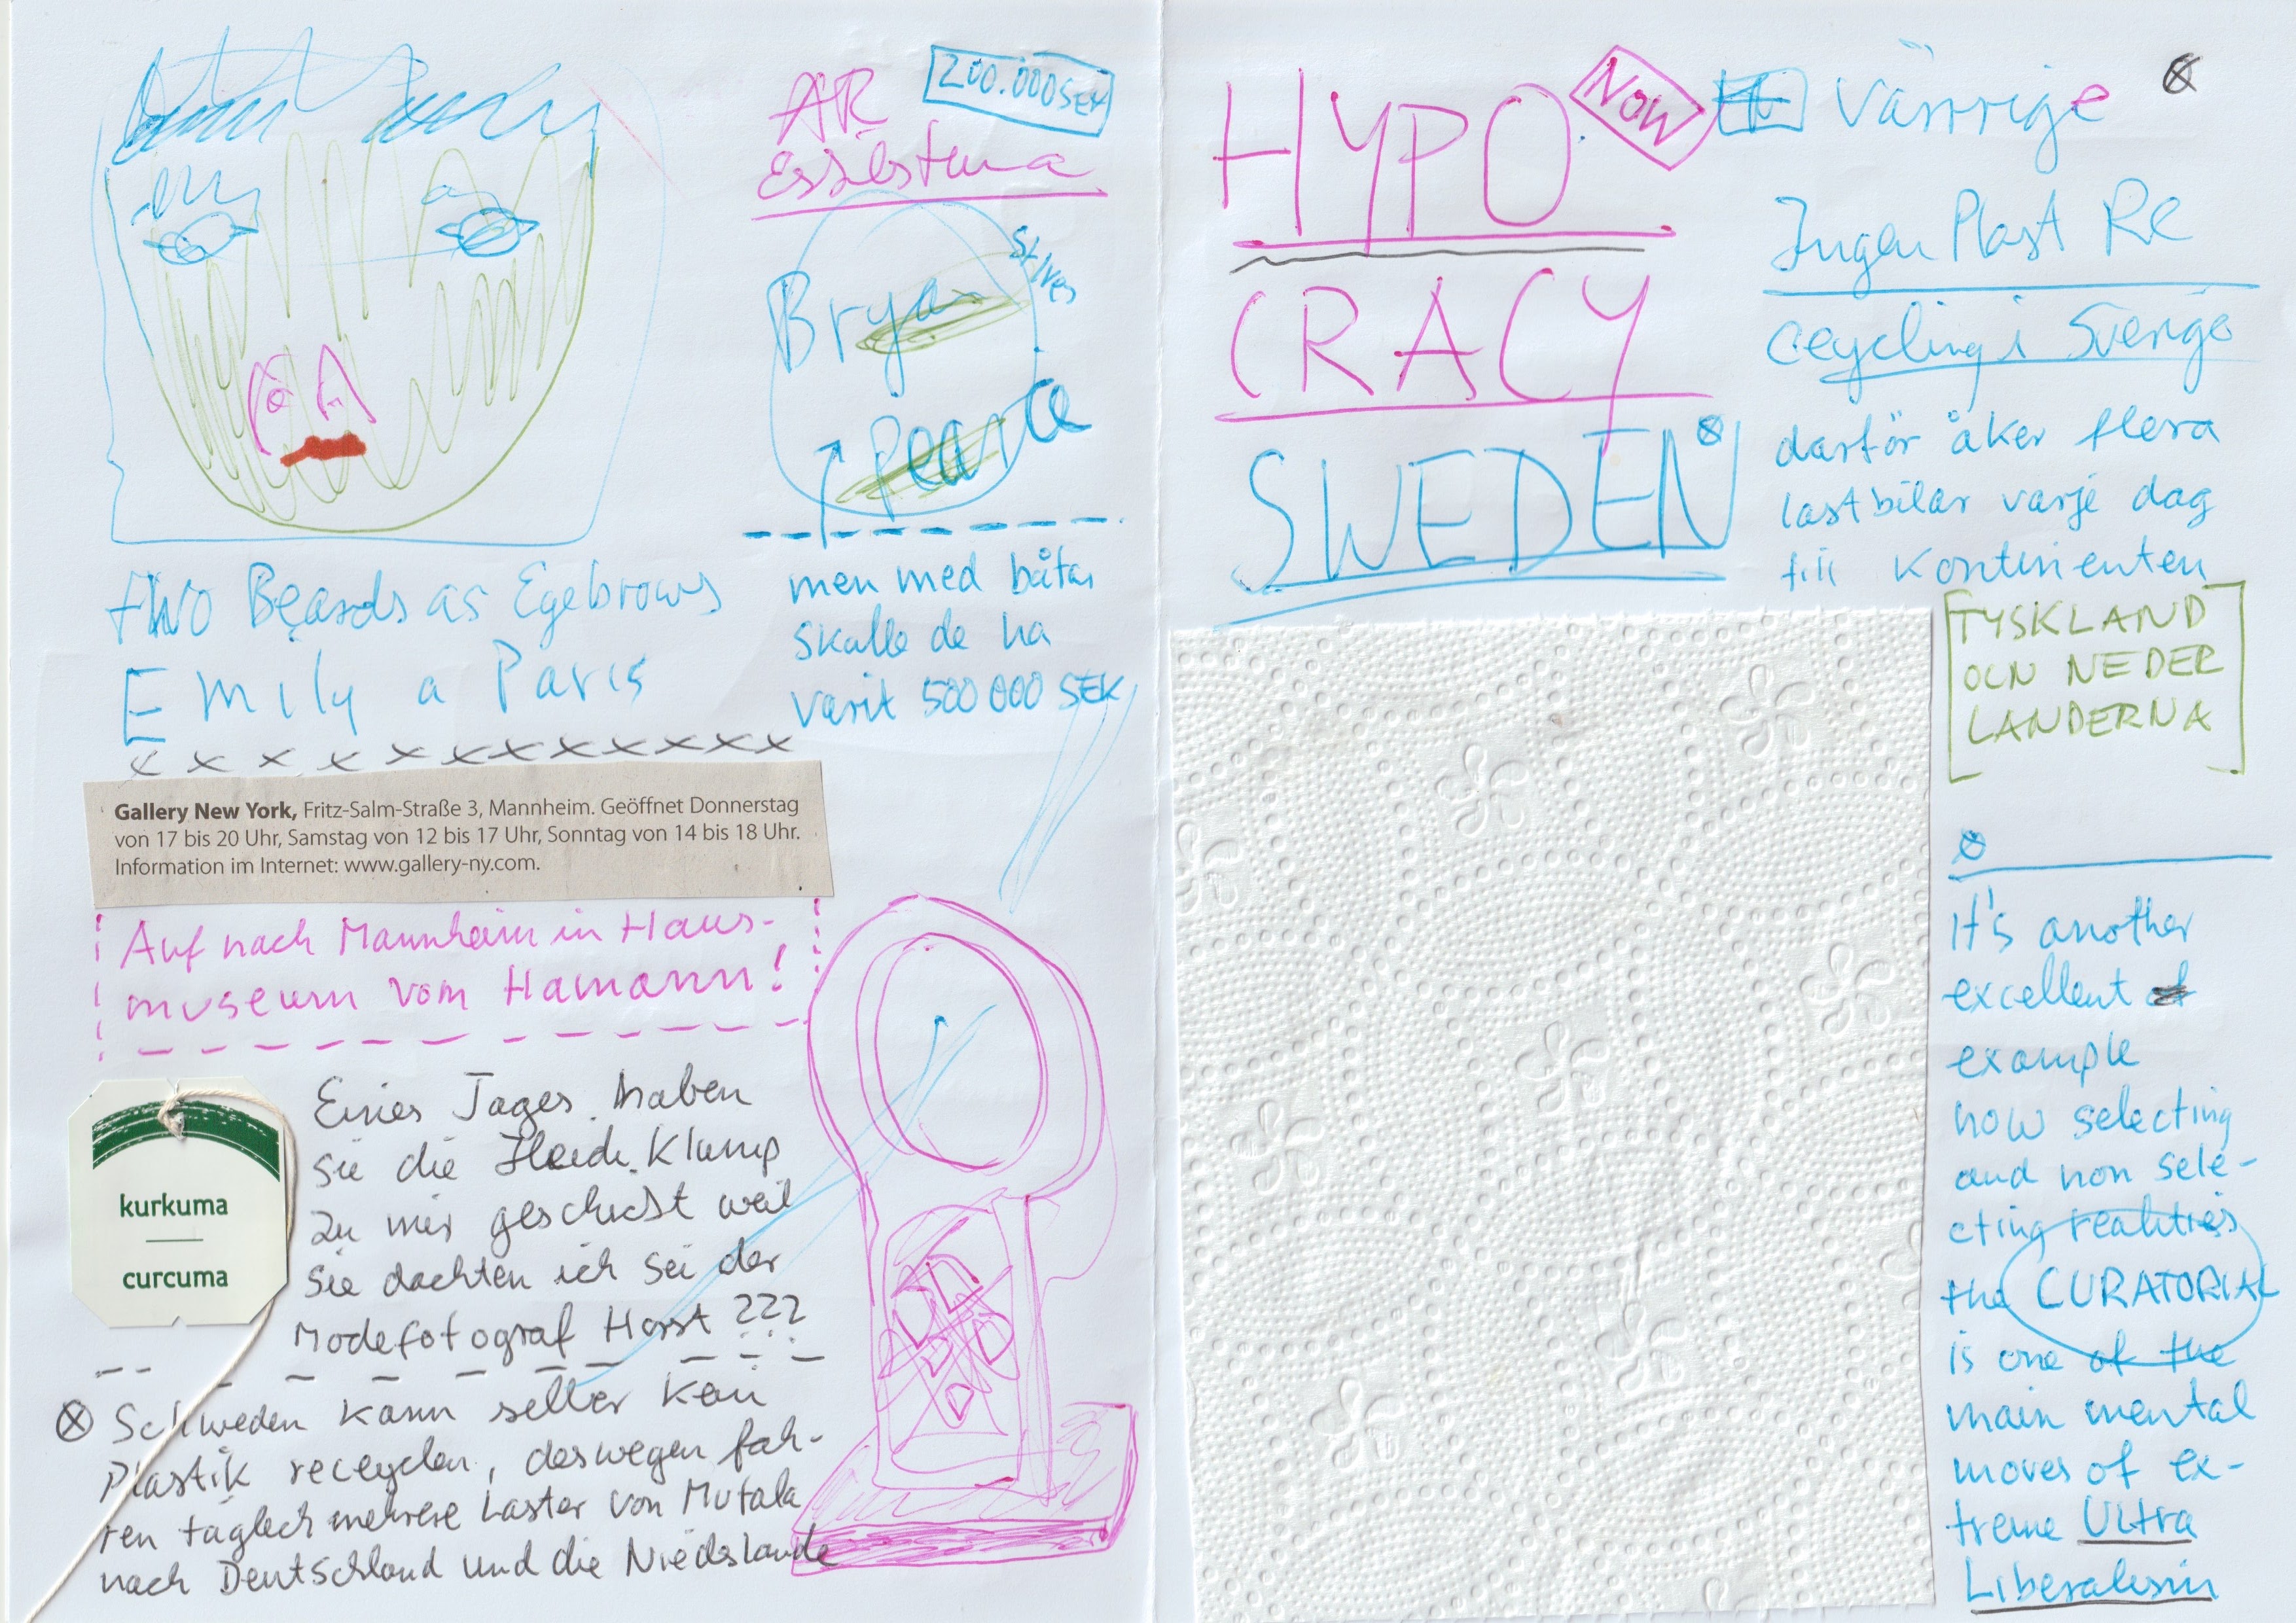 two Beards as Eyebrows
Emily a Paris
Gallery New York, Fritz-Salm-Straße 3, Mannheim. Geöffnet Donnerstag
von 17 bis 20 Uhr, Samstag von 12 bis 17 Uhr, Sonntag von 14 bis 18 Uhr.
Information im Internet: www.gallery-ny.com.
Auf nach Mannheim in Haus-
museum vom Hamann!
kurkuma
curcuma
Eines Tages haben
sie die Heidi Klump
zu mir geschickt weil
sie dachten ich sei der
Modefotograf Horst ???
Schweden kann selber kein
Plastik recyclen, deswegen fah-
ren täglich mehrere Laster von Mutala
nach Deutschland und die Niederlande
200.000 SEK
AR
Bryan
St Ives
Pearce
men med båtar
skalle de ha
varit 500 000 SEK
HYPO
NOW
CRACY
SWEDEN
Värrige
Ingen Plast Re
cecycling i Sverige
darför åker flera
lastbilar varje dag
till Kontinenten
TYSKLAND
OCH NEDER
LANDERNA
It's another
excellent
example
how selecting
and non sele-
cting realities
the CURATORIAL
is one of the
main mental
moves of ex-
treme Ultra
Liberalism